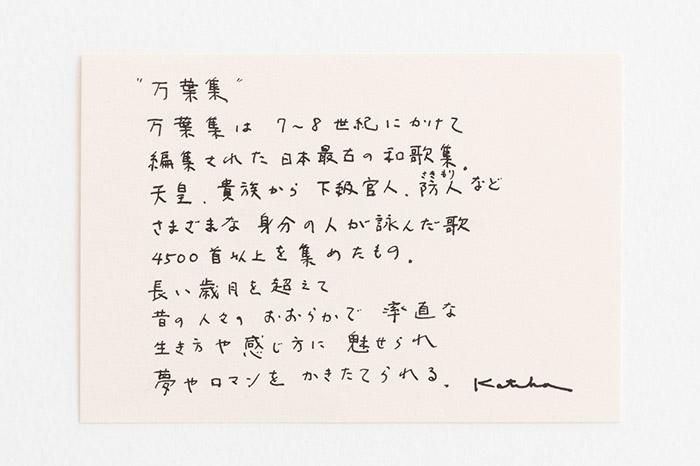 "万葉集"
万葉集は 7〜8世紀にかけて
編集された日本最古の和歌集。
天皇、貴族から 下級官人、防人など
さきもり
さまざまな 身分の人が詠んだ歌
4500首以上を集めたもの。
長い歳月を超えて
昔の人々の おおらかで 率直な
生き方や感じ方に 魅せられ
夢やロマンを かきたてられる。